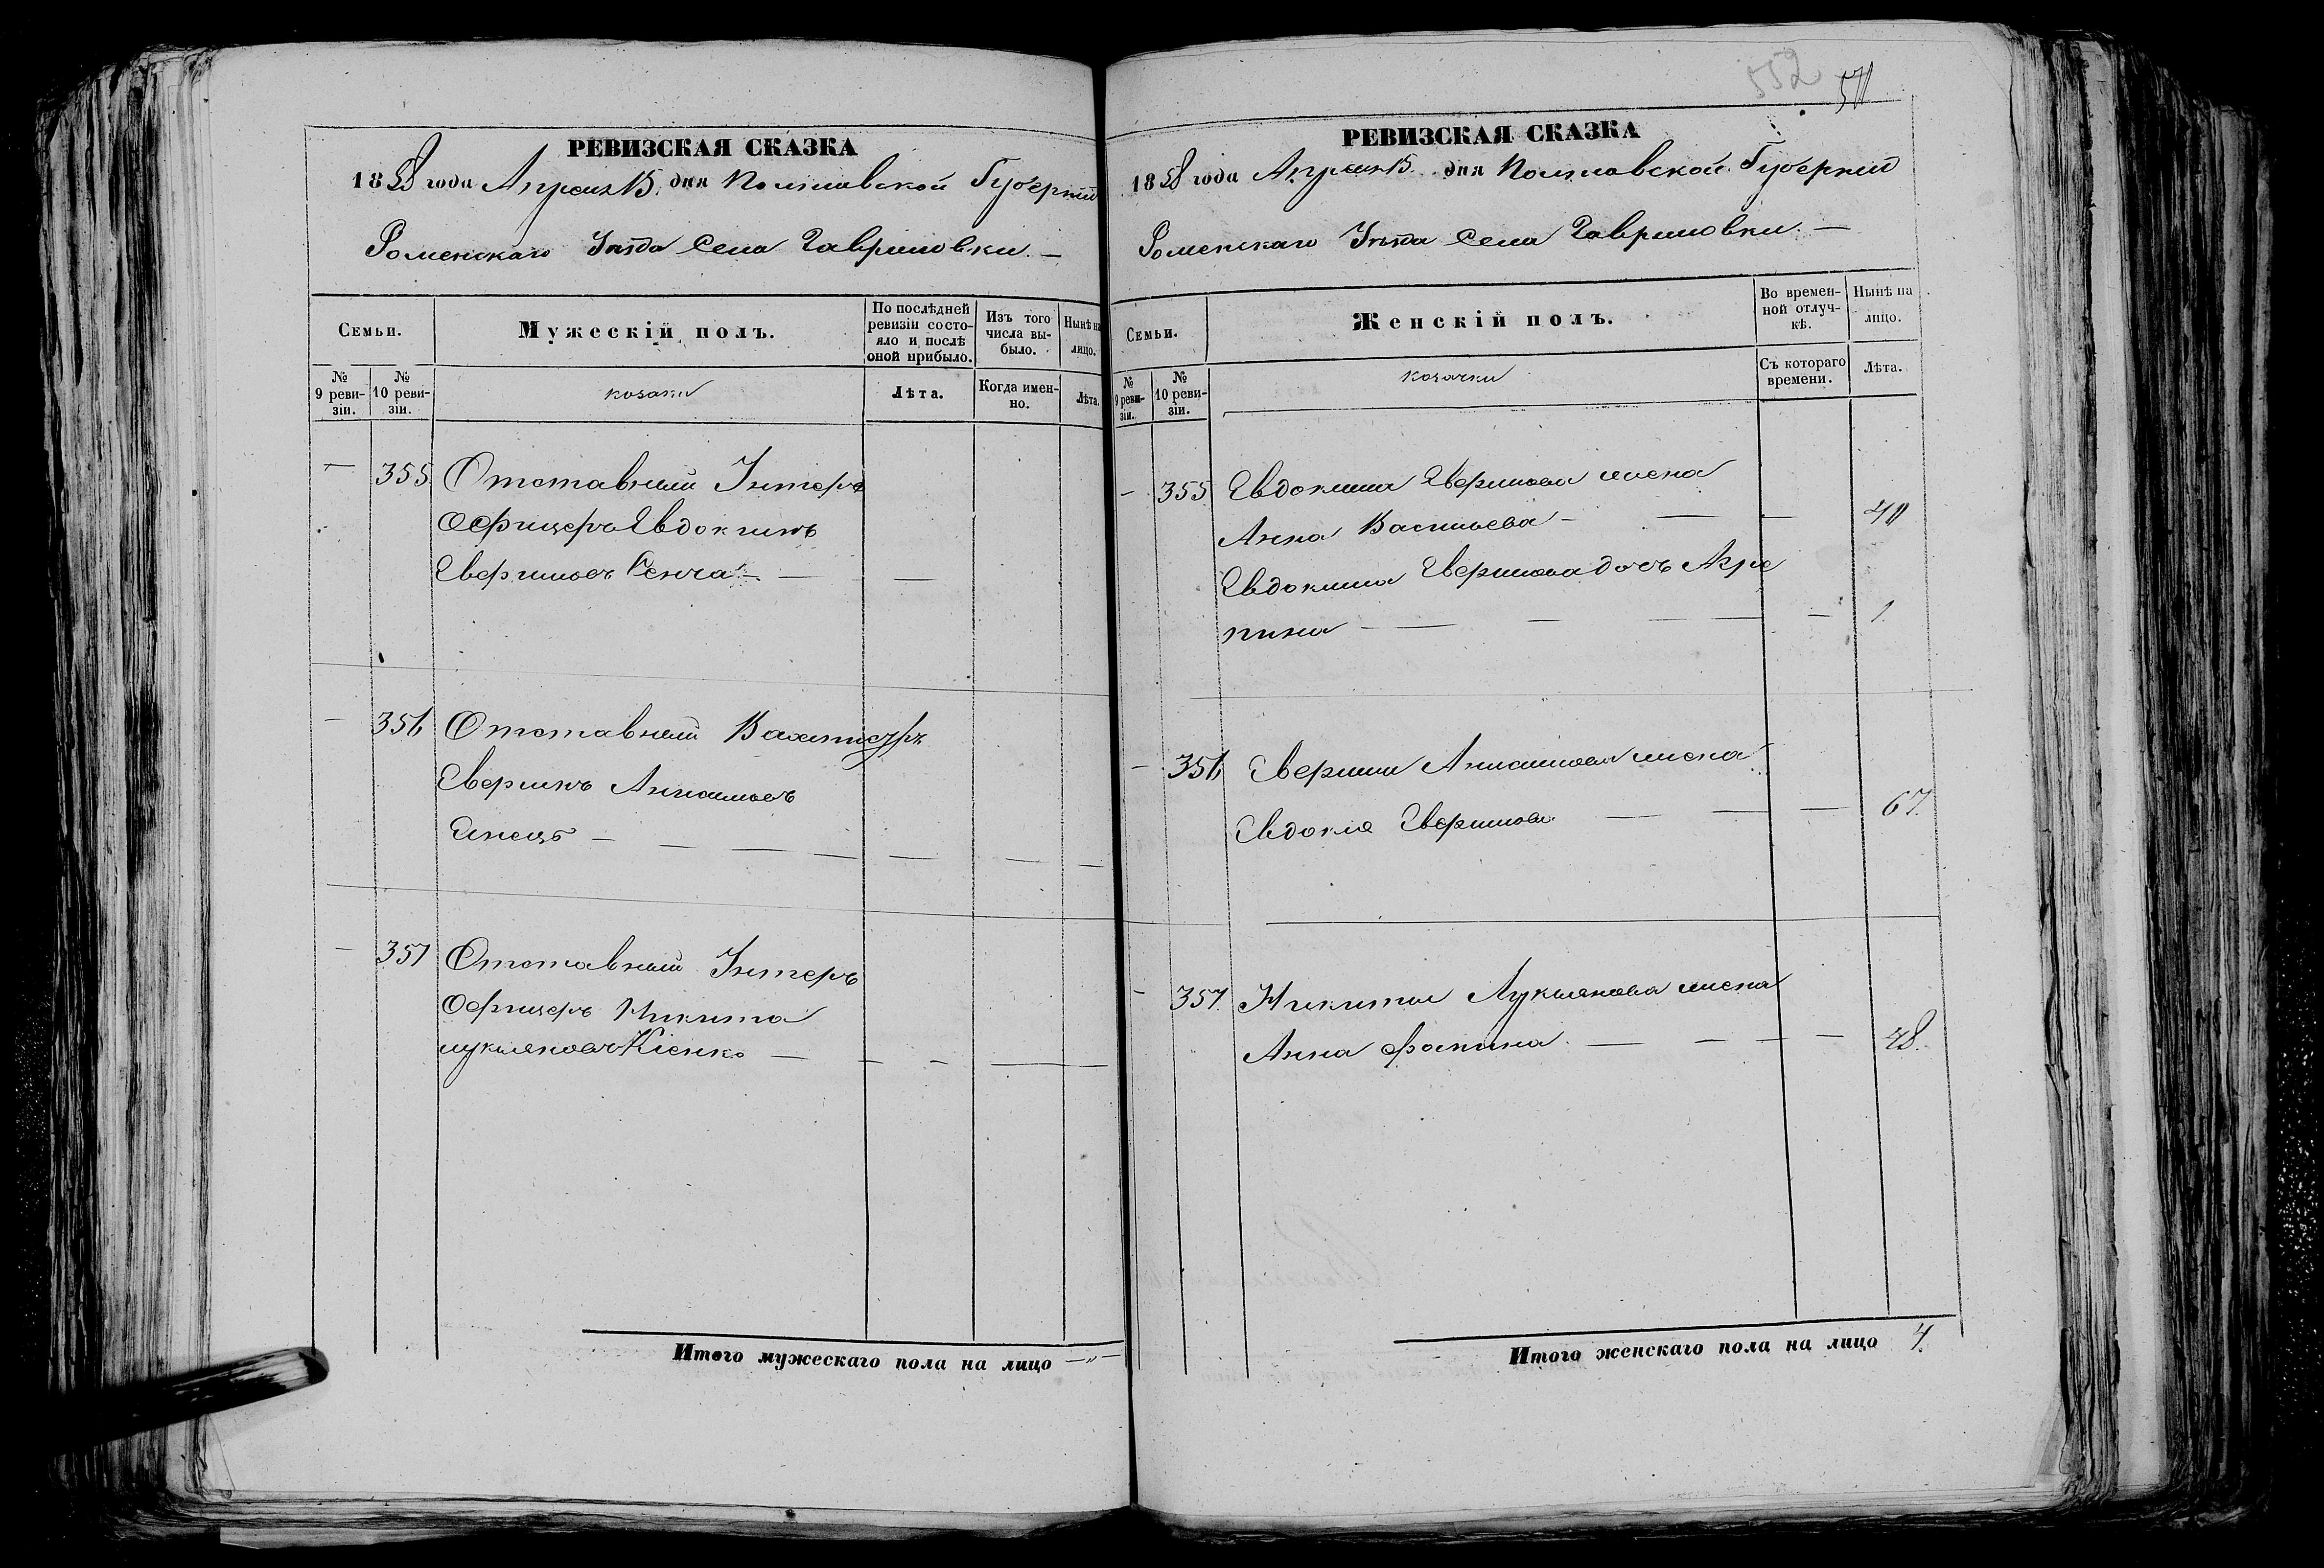 552 511
РЕВИЗСКАЯ СКАЗКА
1858 года Апреля 15 дня Полтавской Губерніи
Роменскаго Уѣзда Села Гавриловки. —
Семьи.
Мужескій полъ.
По послѣдней ревизіи состояло и послѣ оной прибыло.
Изъ того числа выбыло.
Нынѣ на лицо.
№ 9 ревизіи.
№ 10 ревизіи.
козаки
Лѣта.
Когда именно.
Лѣта.
— 355 Отставный Унтеръ
Офицеръ Евдокимъ
Сенча — — —
— 356 Отставный Вахмистръ
— — — — — — —
— 357 Отставный Унтеръ
Офицеръ Никита
Лукьяновъ Кіенко — — — —
Итого мужескаго пола на лицо — „ —
РЕВИЗСКАЯ СКАЗКА
1858 года Апреля 15 дня Полтавской Губерніи
Роменскаго Уѣзда Села Гавриловки. —
Семьи.
Женскій полъ.
Во временной отлучкѣ.
Нынѣ на лицо.
№ 9 ревизіи.
№ 10 ревизіи.
козачки
Съ котораго времени.
Лѣта.
— 355 Евдокима жена
Анна Васильева — — —
Евдокима дочь Агре
пина — — — — — — 1
— 356 жена
Евдокія — — — 67.
— 357. Никиты Лукьянова жена
Анна Фокина — — — — 48.
Итого женскаго пола на лицо 4.